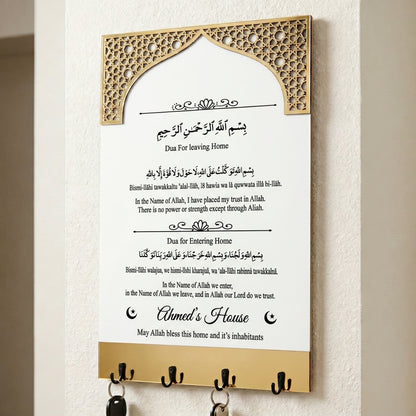 بِسْمِ اللَّهِ الرَّحْمَنِ الرَّحِيمِ
Dua For leaving Home
بِسْمِ اللَّهِ تَوَكَّلْتُ عَلَى اللَّهِ، لَا حَوْلَ وَلَا قُوَّةَ إِلَّا بِاللَّهِ
Bismi-llāhi tawakkaltu 'alal-llāh, lā hawla wa lā quwwata illā bi-llāh.
In the Name of Allah, I have placed my trust in Allah.
There is no power or strength except through Allah.
Dua for Entering Home
بِسْمِ اللَّهِ وَلَجْنَا، وَبِسْمِ اللَّهِ خَرَجْنَا، وَعَلَى اللَّهِ رَبِّنَا تَوَكَّلْنَا
In the Name of Allah we enter,
in the Name of Allah we leave, and in Allah our Lord do we trust.
Ahmed's House
May Allah bless this home and it's inhabitants